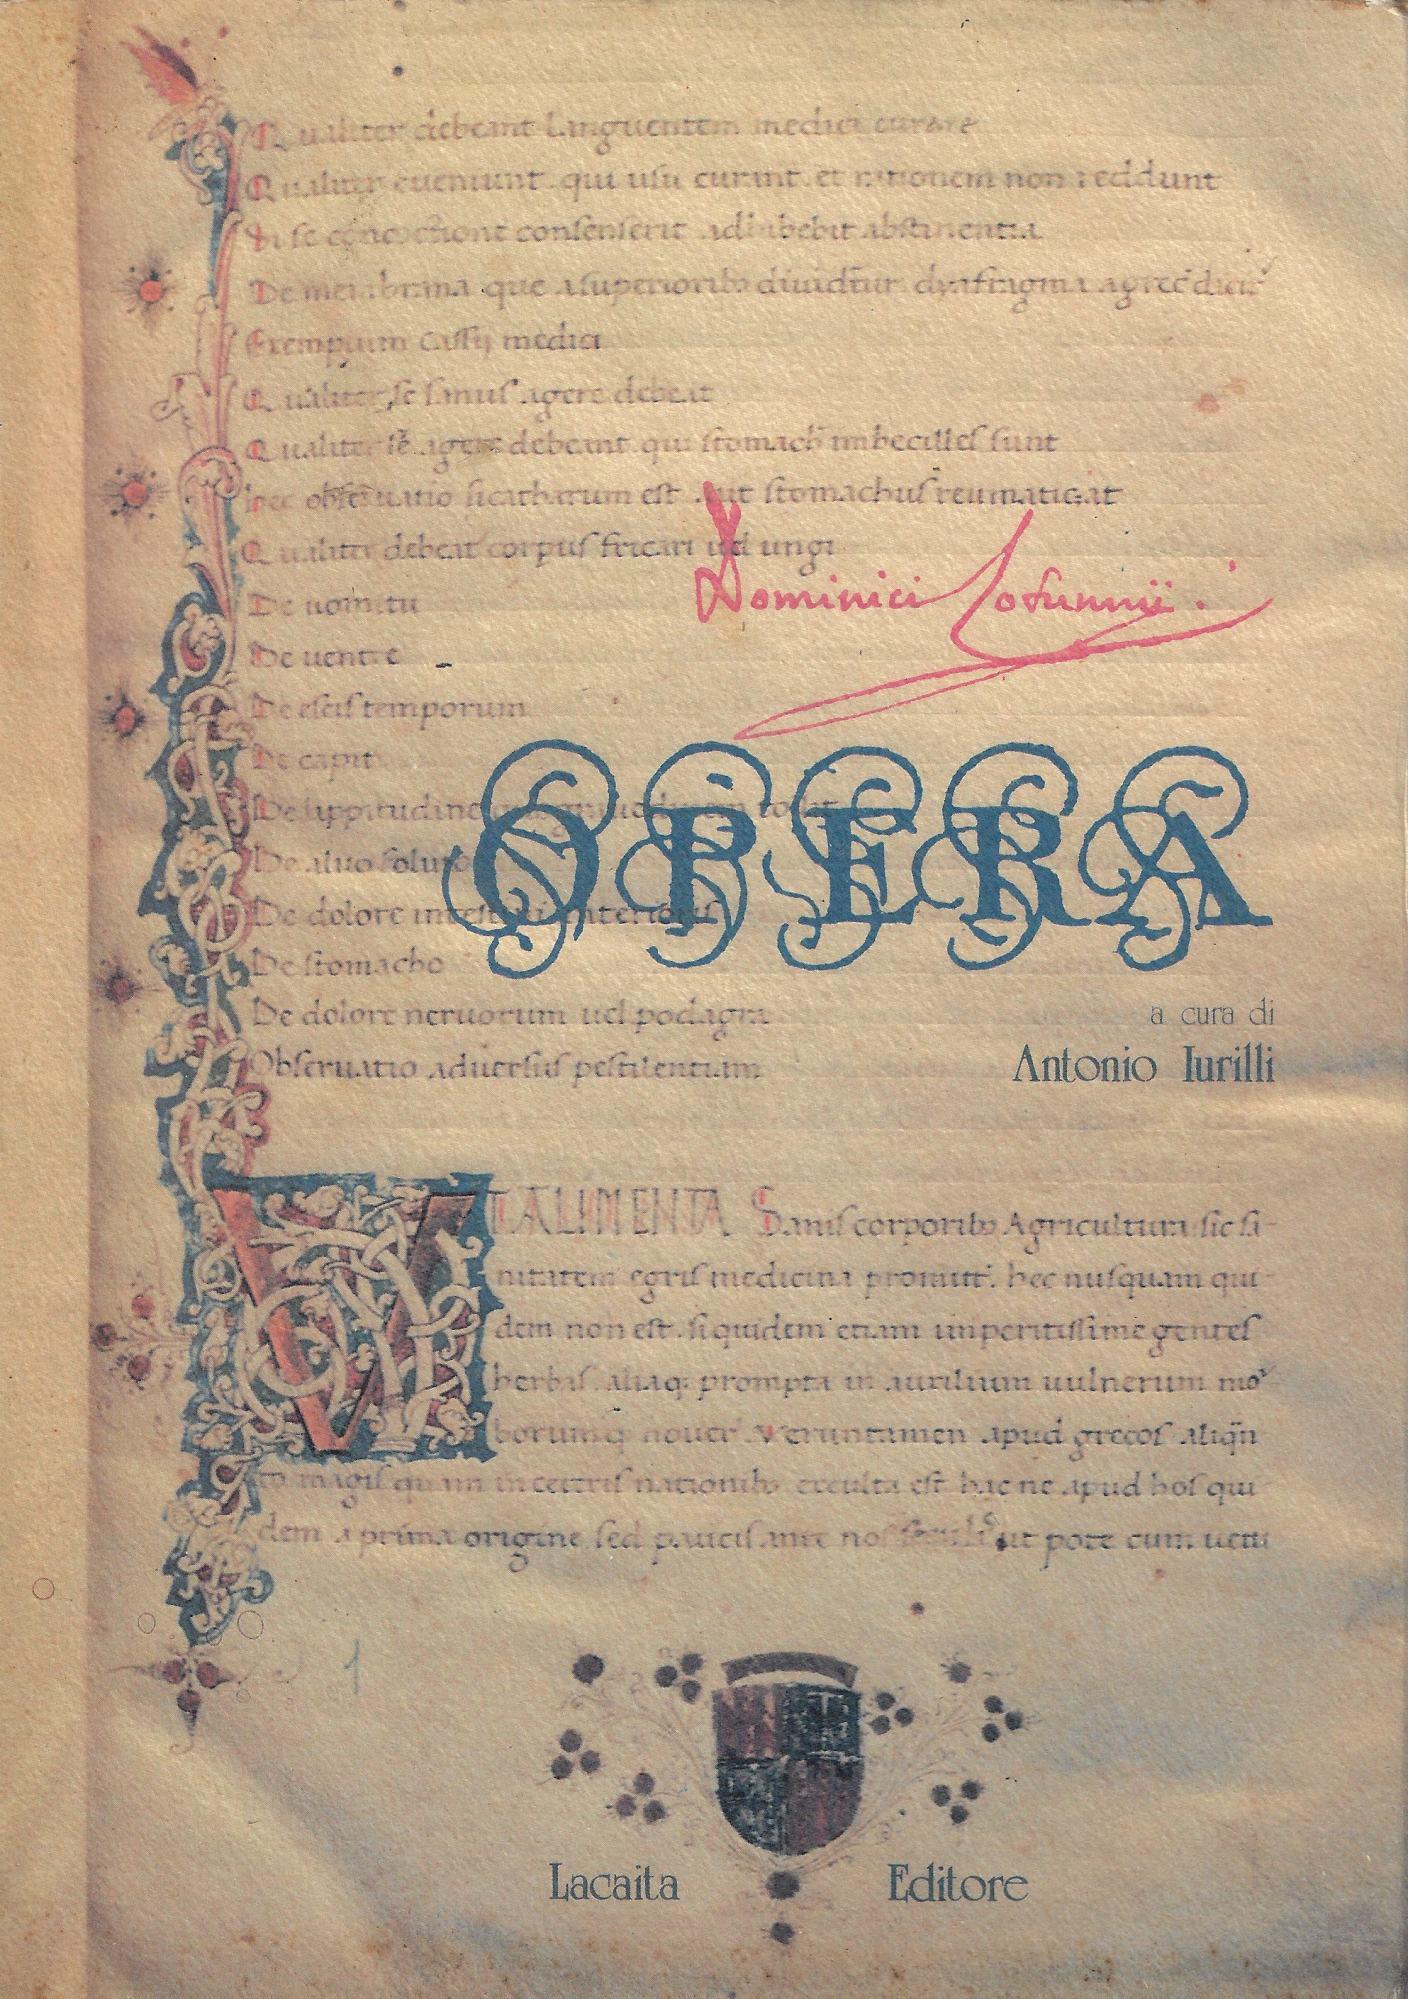 Qualiter debeant Languentem medici curare
Qualiter eueniunt qui usu curant et rationem non reddunt
Si se concoctione consenserit adhibebit abstinentia
De membrana que asuperiorib diuiditur dyafragma agrec dicit
Exemplum Cassij medici
Qualiter se sanus agere debeat
Qualiter se agere debeant qui stomach imbecilles sunt
hec obseruatio sicatharum est aut stomachus reumatizat
Qualiter debeat corpus fricari uel ungi
Dominici Cotunnii.
De uomitu
De uentre
De escis temporum
De capit
OPERA
De lippitudine
De aluo soluto
De dolore intestini interioris
De stomacho
De dolore neruorum uel podagra
a cura di
Antonio Iurilli
Obseruatio aduersus pestilentiam
VT ALIMENTA Sanis corporib Agricultura sic sa-
nitatem egris medicina promitt. hec nusquam qui-
dem non est. siquidem etiam imperitissime gentes
herbas. aliaq; prompta in auxilium uulnerum mo
borumq nouer. veruntamen apud grecos aliqu
to magis quam in ceteris nationib exculta est hac ne apud hos qui
dem a prima origine sed paucis ante nos seculis ut pote cum uetu
1
Lacaita Editore